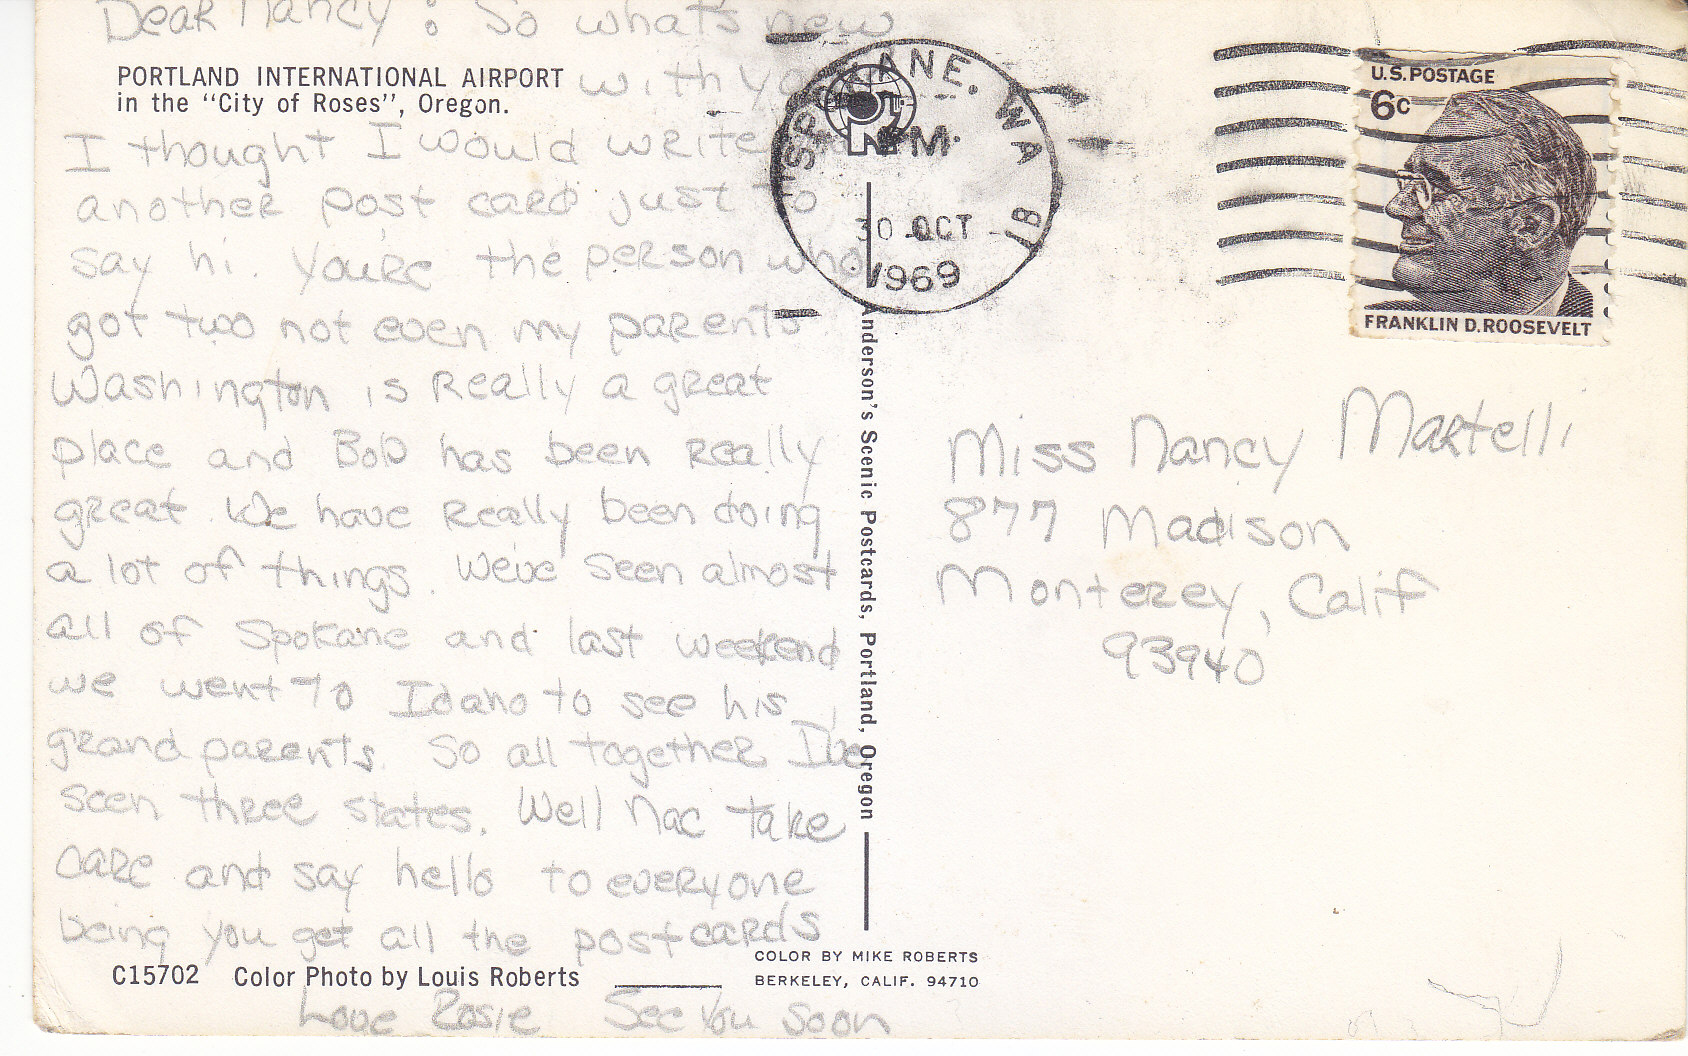 Dear Nancy: So what's new
with you
PORTLAND INTERNATIONAL AIRPORT
in the "City of Roses", Oregon.
I thought I would write
another post card just to
say hi. You're the person who
got two not even my parents
Washington is really a great
place and Bob has been really
great. We have really been doing
a lot of things. We've seen almost
all of Spokane and last weekend
we went to Idaho to see his
grand parents. So all together I've
seen three states. Well Nac take
care and say hello to everyone
being you get all the postcards
Love Rosie See You Soon
C15702 Color Photo by Louis Roberts
Anderson's Scenic Postcards, Portland, Oregon
COLOR BY MIKE ROBERTS
BERKELEY, CALIF. 94710
SPOKANE, WA
PM
30 OCT
1969
U.S. POSTAGE
6c
FRANKLIN D. ROOSEVELT
Miss Nancy Martelli
877 Madison
Monterey, Calif
93940